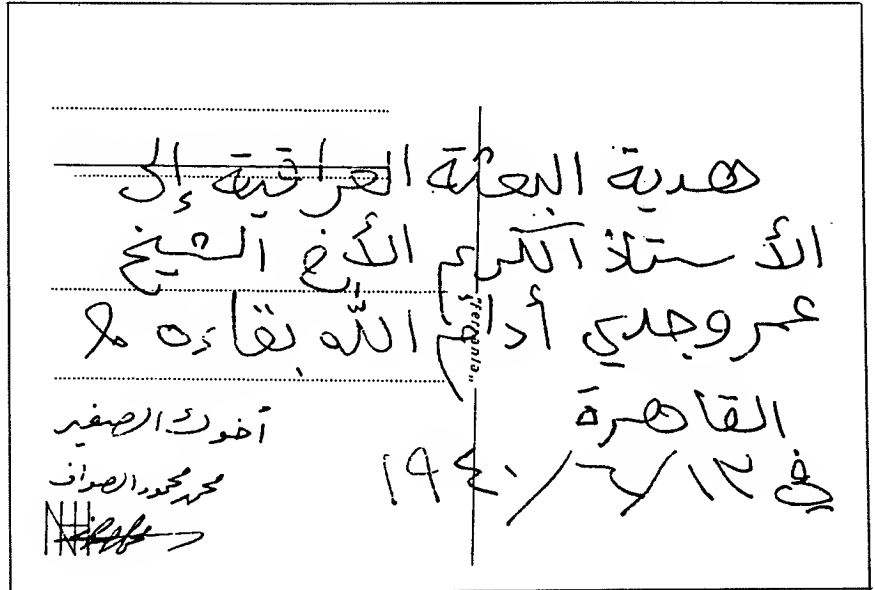 هدية البعثة العراقية إلى
الأستاذ الكريم الأخ الشيخ
عمر وجدي أدام الله بقاءه
القاهرة
في ١٣/٦/١٩٤٠
أخوك الصغير
محمد محمود الصواف
"Ferrania"